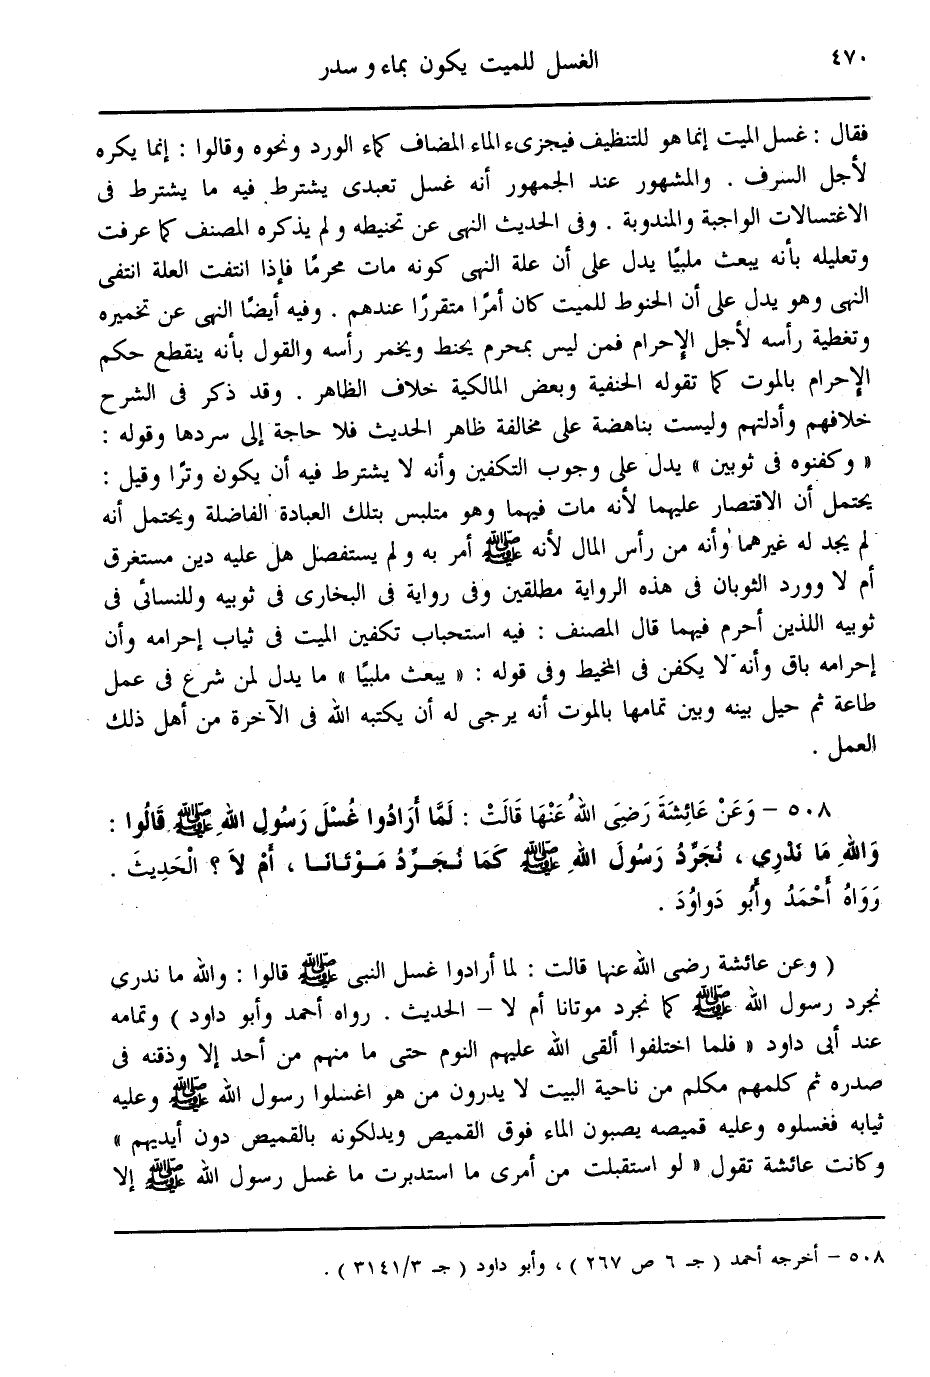 ٤٧٠
الغسل للميت يكون بماء و سدر
فقال : غسل الميت إنما هو للتنظيف فيجزىء الماء المضاف كماء الورد ونحوه وقالوا : إنما يكره
لأجل السرف . والمشهور عند الجمهور أنه غسل تعبدى يشترط فيه ما يشترط فى
الاغتسالات الواجبة والمندوبة . وفى الحديث النهى عن تحنيطه و لم يذكره المصنف كما عرفت
وتعليله بأنه يبعث ملبيًا يدل على أن علة النهى كونه مات محرمًا فإذا انتفت العلة انتفى
النهى وهو يدل على أن الحنوط للميت كان أمرًا متقررًا عندهم . وفيه أيضًا النهى عن تخميره
وتغطية رأسه لأجل الإحرام فمن ليس بمحرم يحنط ويخمر رأسه والقول بأنه ينقطع حكم
الإحرام بالموت كما تقوله الحنفية وبعض المالكية خلاف الظاهر . وقد ذكر فى الشرح
خلافهم وأدلتهم وليست بناهضة على مخالفة ظاهر الحديث فلا حاجة إلى سردها وقوله :
« وكفنوه فى ثوبين » يدل على وجوب التكفين وأنه لا يشترط فيه أن يكون وترًا وقيل :
يحتمل أن الاقتصار عليهما لأنه مات فيهما وهو متلبس بتلك العبادة الفاضلة ويحتمل أنه
لم يجد له غيرهما وأنه من رأس المال لأنه ﷺ أمر به و لم يستفصل هل عليه دين مستغرق
أم لا وورد الثوبان فى هذه الرواية مطلقين وفى رواية فى البخارى فى ثوبيه وللنسائى فى
ثوبيه اللذين أحرم فيهما قال المصنف : فيه استحباب تكفين الميت فى ثياب إحرامه وأن
إحرامه باق وأنه لا يكفن فى المخيط وفى قوله : « يبعث ملبيًا » ما يدل لمن شرع فى عمل
طاعة ثم حيل بينه وبين تمامها بالموت أنه يرجى له أن يكتبه الله فى الآخرة من أهل ذلك
العمل .
٥٠٨ – وَعَنْ عَائِشَةَ رَضِىَ اللهُ عَنْهَا قَالَتْ : لَمَّا أَرَادُوا غُسْلَ رَسُولِ اللهِ ﷺ قَالُوا :
وَاللهِ مَا نَدْرِي ، نُجَرِّدُ رَسُولَ اللهِ ﷺ كَمَا نُجَرِّدُ مَوْتَانَا ، أَمْ لاَ ؟ الْحَدِيثَ .
رَوَاهُ أَحْمَدُ وأَبُو دَواوُدَ .
( وعن عائشة رضى الله عنها قالت : لما أرادوا غسل النبى ﷺ قالوا : والله ما ندرى
نجرد رسول الله ﷺ كما نجرد موتانا أم لا – الحديث . رواه أحمد وأبو داود ) وتمامه
عند أبى داود « فلما اختلفوا ألقى الله عليهم النوم حتى ما منهم من أحد إلا وذقنه فى
صدره ثم كلمهم مكلم من ناحية البيت لا يدرون من هو اغسلوا رسول الله ﷺ وعليه
ثيابه فغسلوه وعليه قميصه يصبون الماء فوق القميص ويدلكونه بالقميص دون أيديهم »
وكانت عائشة تقول « لو استقبلت من أمرى ما استدبرت ما غسل رسول الله ﷺ إلا
٥٠٨ – أخرجه أحمد ( جـ ٦ ص ٢٦٧ ) ، وأبو داود ( جـ ٣١٤١/٣ ) .